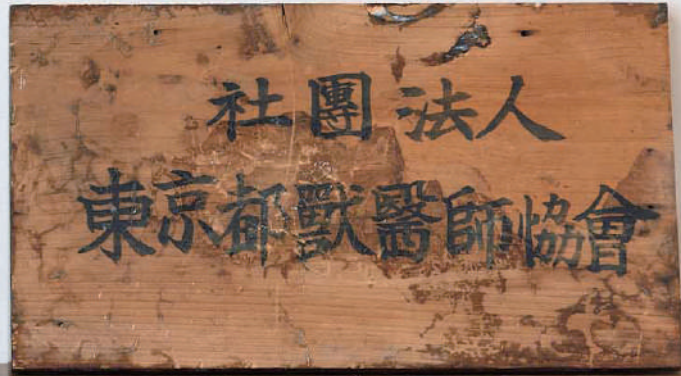 社團法人
東京都獸醫師協會